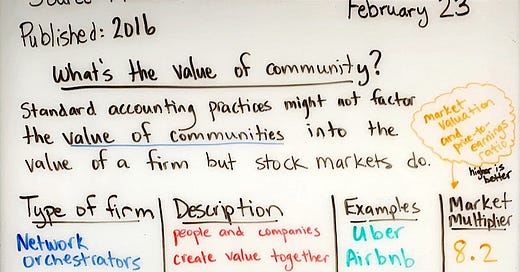 February 23
Published: 2016
What's the value of community?
Standard accounting practices might not factor
the value of communities into the
value of a firm but stock markets do.
market
valuation
and
price-to-
earnings
ratio
higher is
better
Type of firm
Description
Examples
Market
Multiplier
Network
orchestrators
people and companies
create value together
Uber
Airbnb
8.2